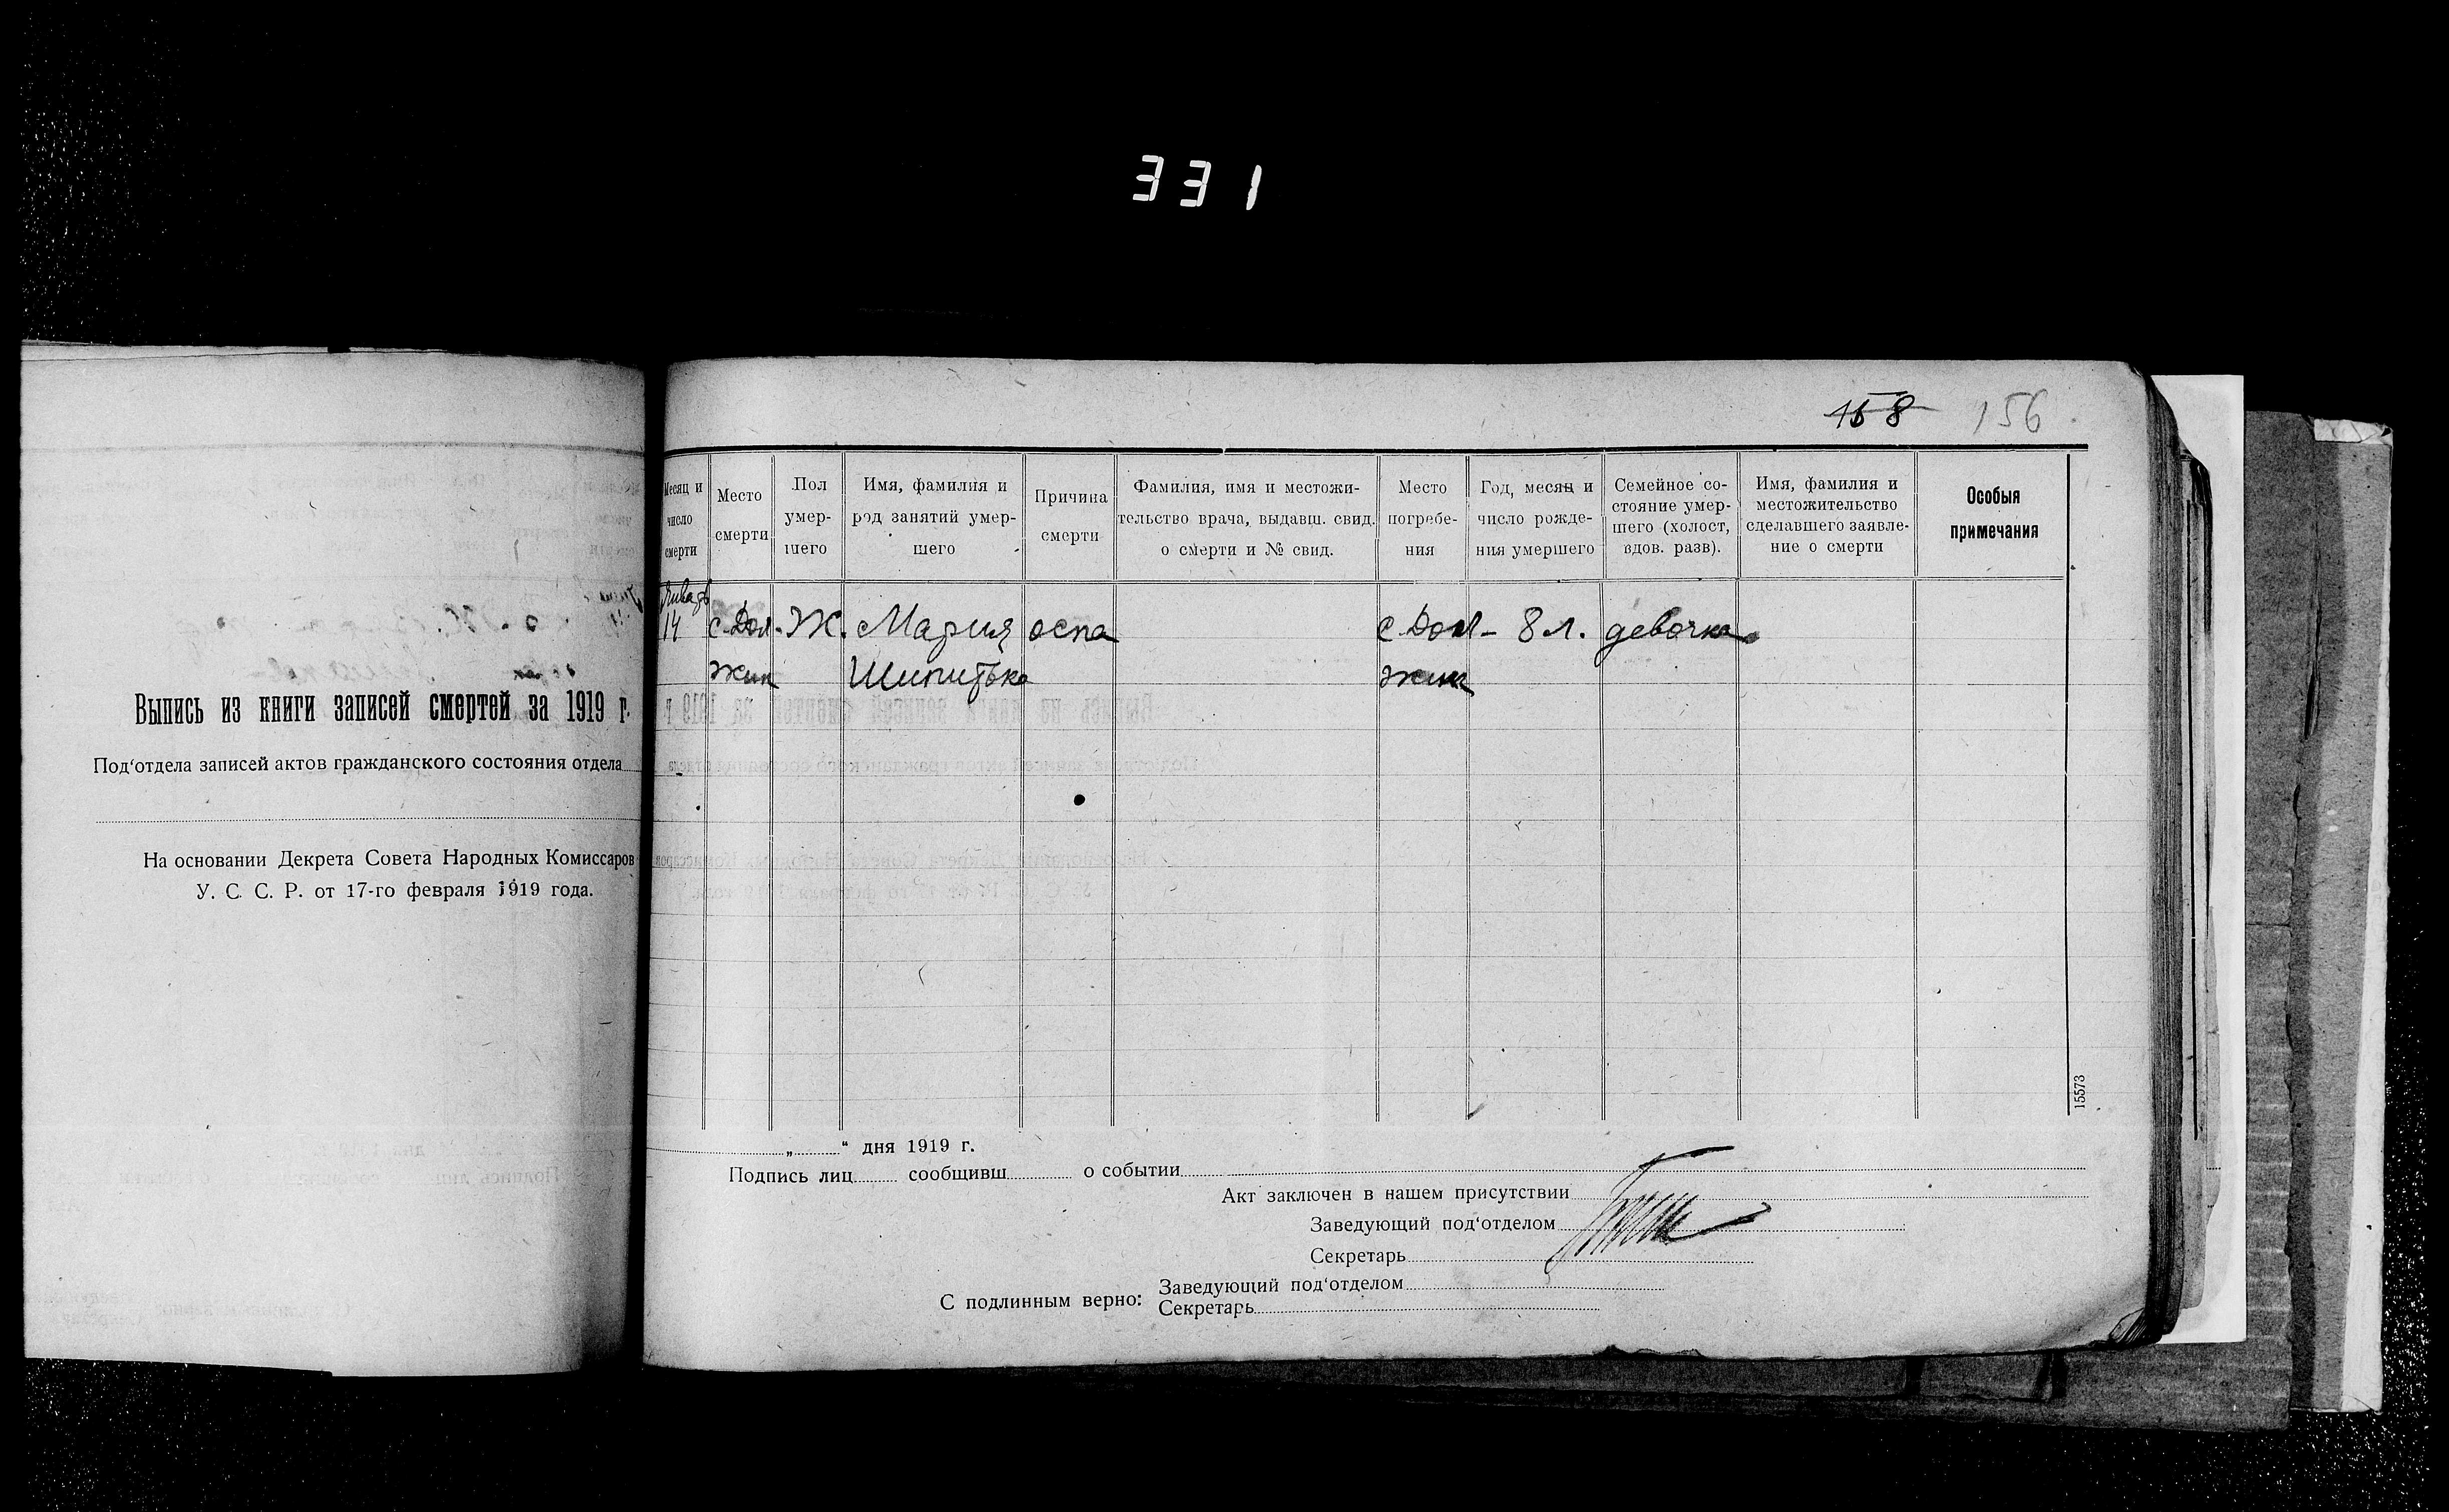 331
158 156
Выпись из книги записей смертей за 1919 г.
Под‘отдела записей актов гражданского состояния отдела
На основании Декрета Совета Народных Комиссаров
У. С. С. Р. от 17-го февраля 1919 года.
Месяц и число смерти
Место смерти
Пол умер-шего
Имя, фамилия и род занятий умер-шего
Причина смерти
Фамилия, имя и местожи-тельство врача, выдавш. свид. о смерти и № свид.
Место погребе-ния
Год, месяц и число рожде-ния умершего
Семейное со-стояние умер-шего (холост, вдов. разв).
Имя, фамилия и местожительство сделавшего заявле-ние о смерти
Особыя примечания
Январь
14 с. Дол- Ж. Мария оспа с. Дол- 8 л. девочка
жик Шипитько жик
15573
„ “ дня 1919 г.
Подпись лиц сообщивш о событии
Акт заключен в нашем присутствии
Заведующий под‘отделом
Секретарь
С подлинным верно: Заведующий под‘отделом
Секретарь